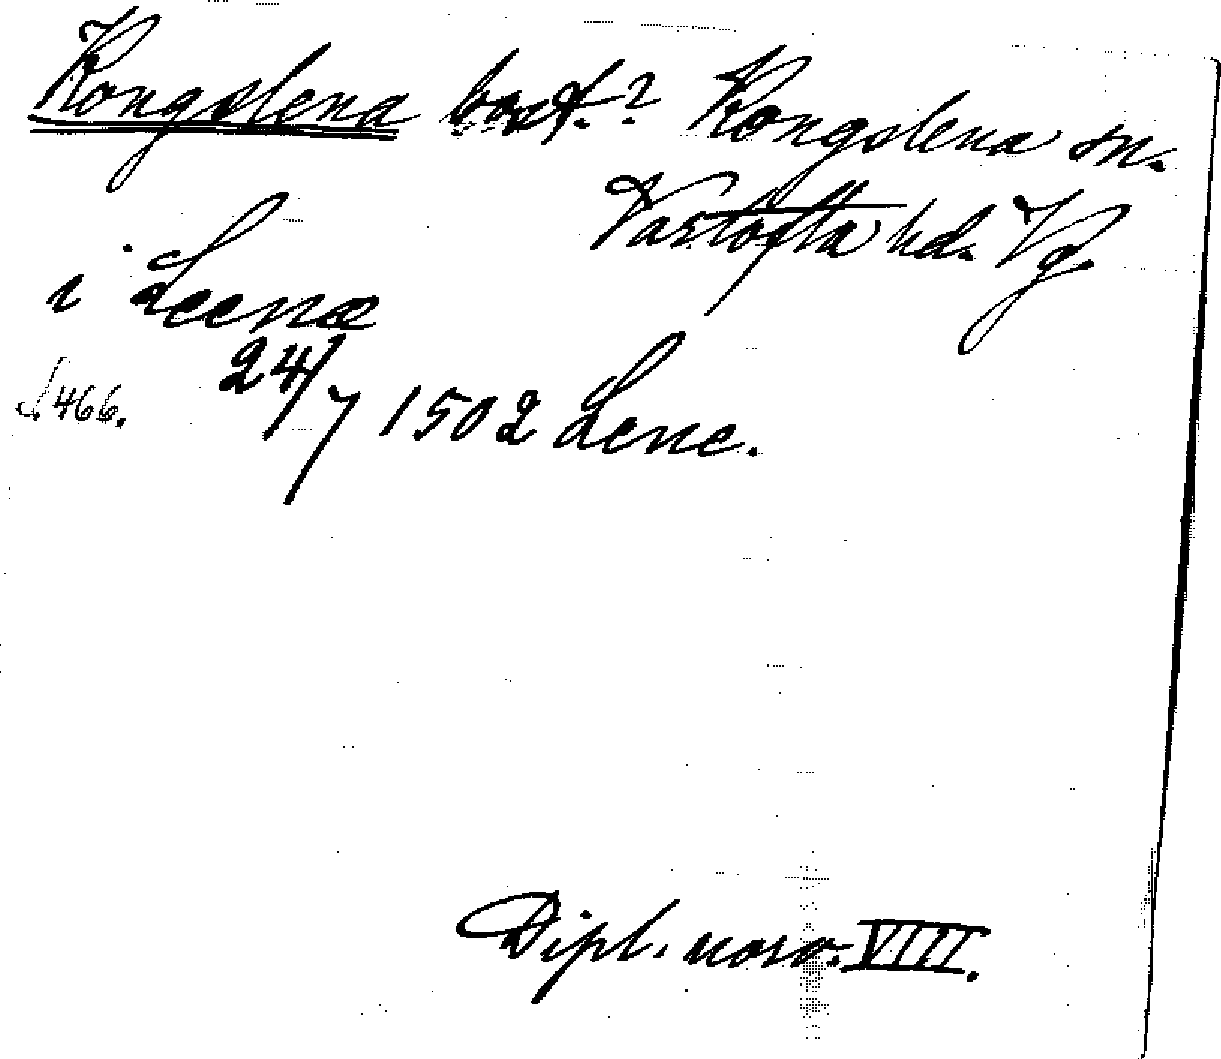 Kongslena bost.? Kongslena sn.
Vartofta hd. Vg.
i Leena
24/7 1502 Lene.
S. 466.
Dipl. norv. VIII.